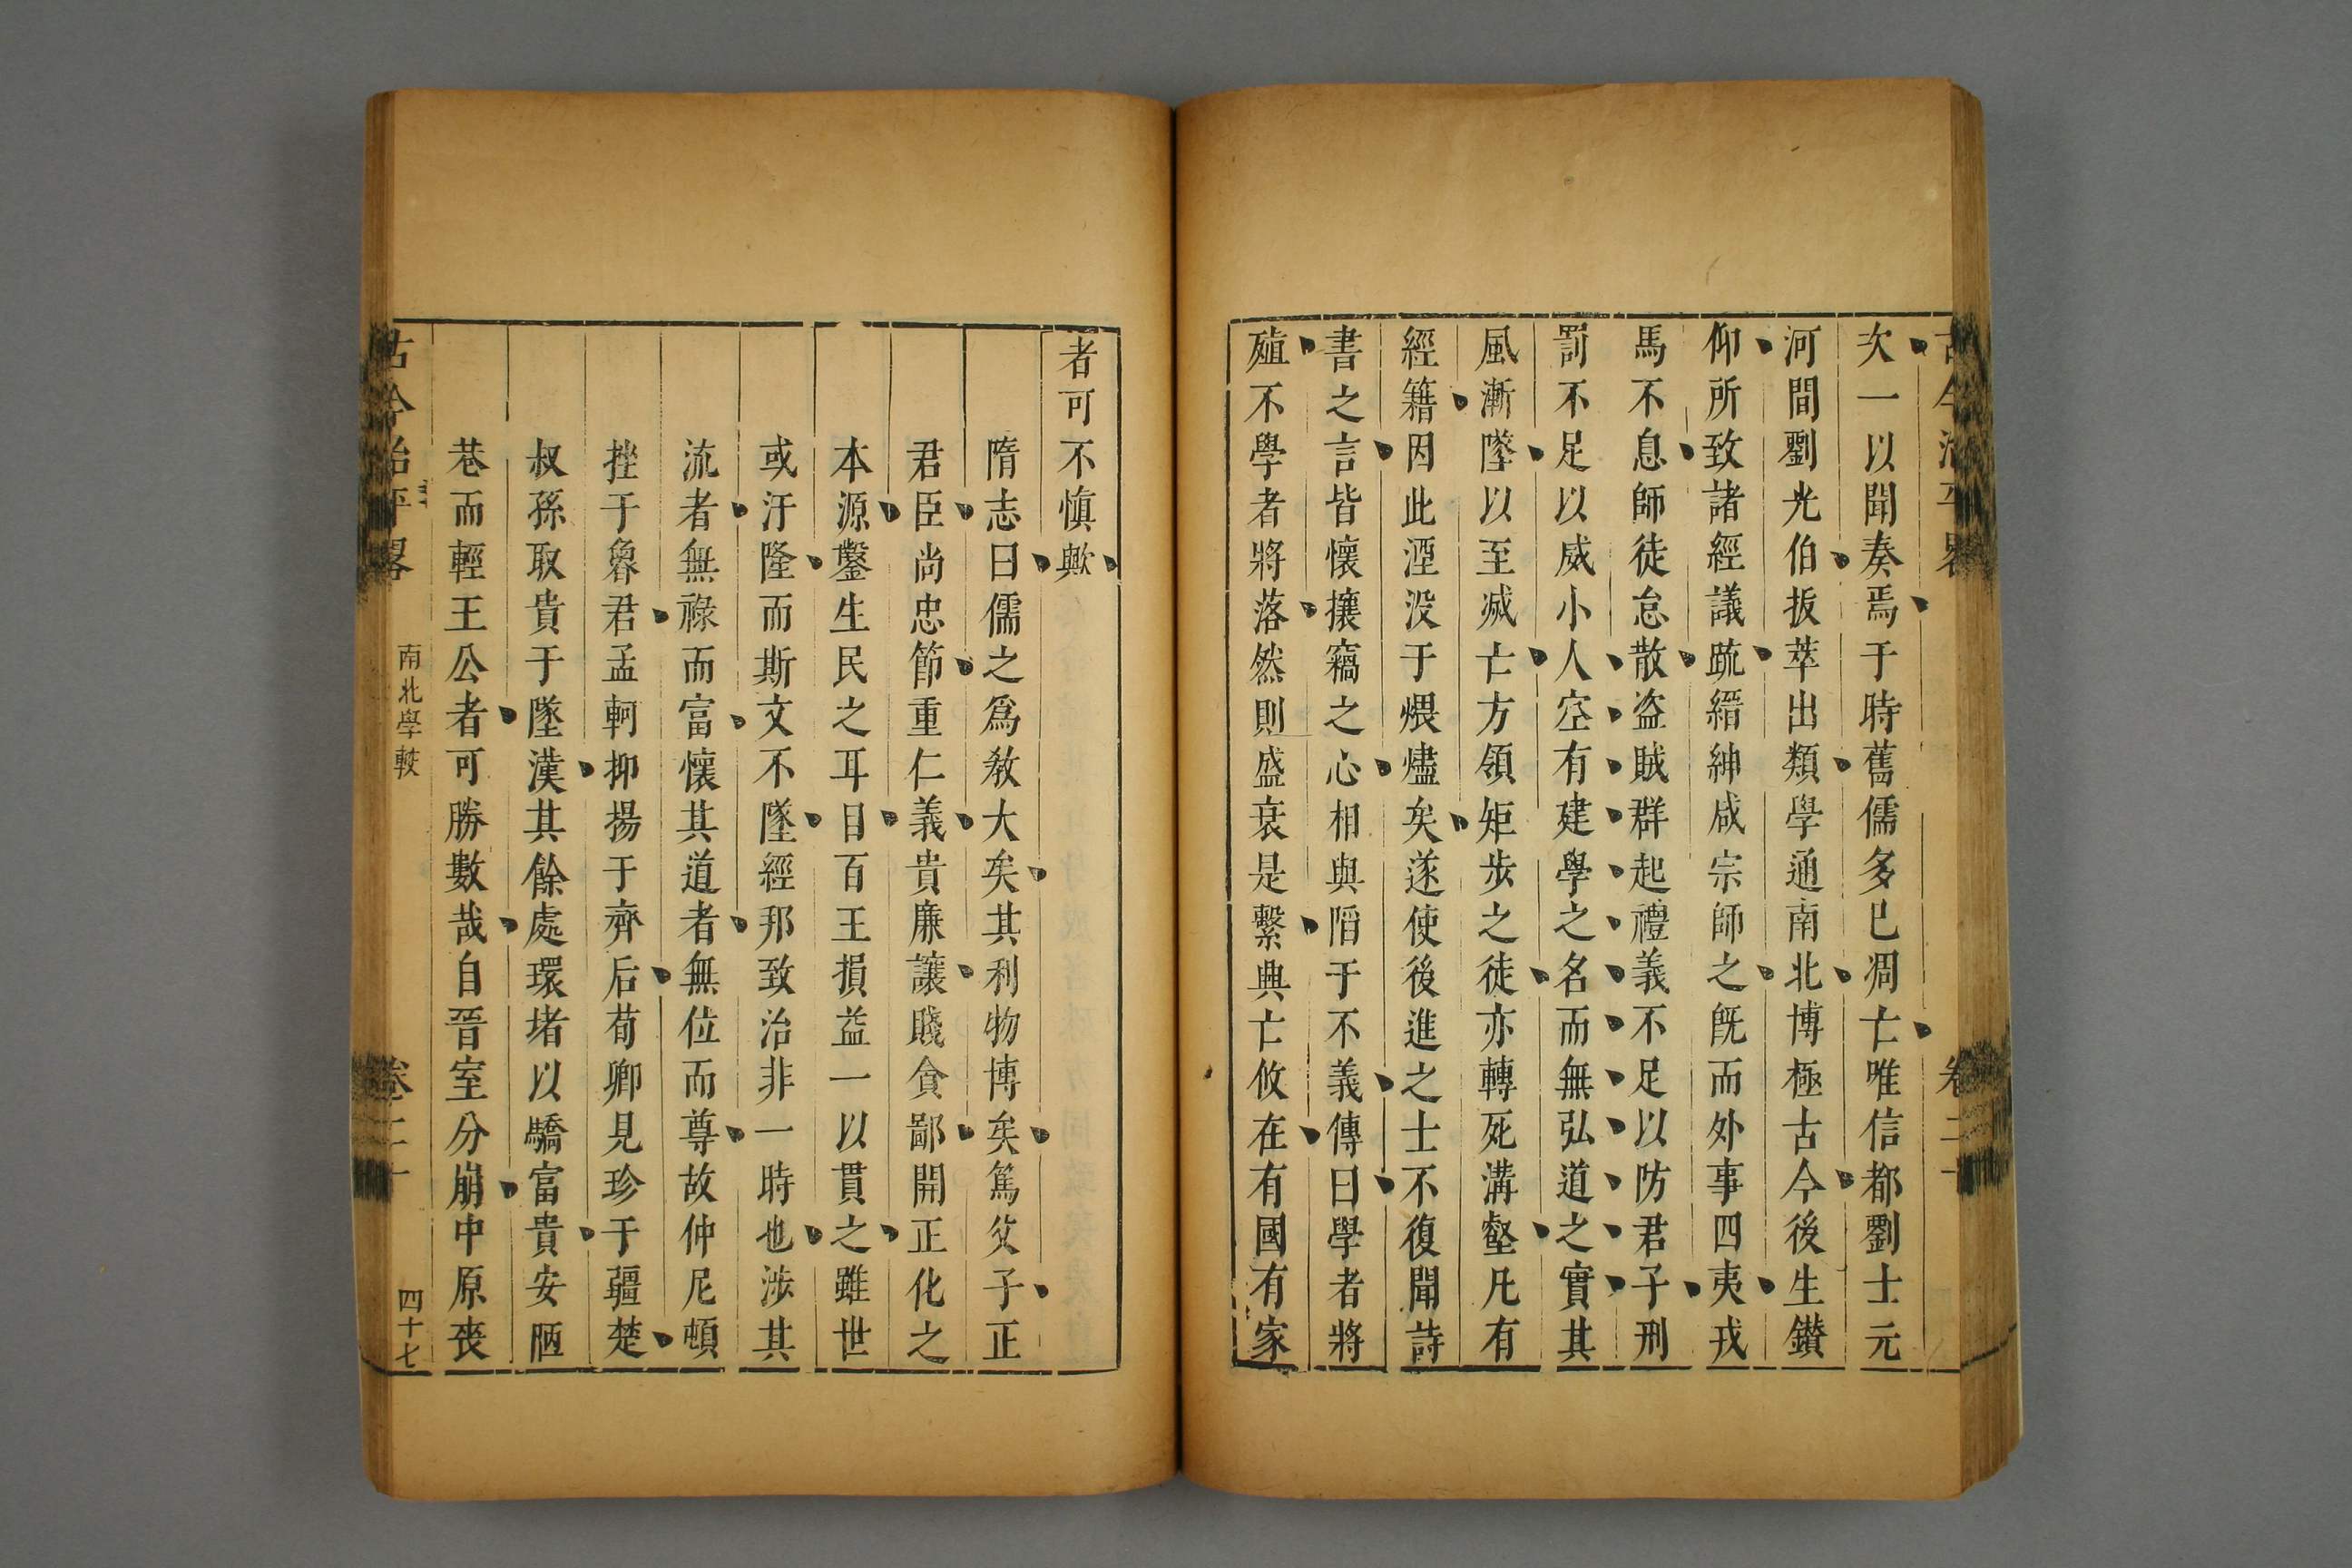 古今治平畧
卷二十
次一以聞奏焉于時舊儒多已凋亡唯信都劉士元
河間劉光伯拔萃出類學通南北博極古今後生鑚
仰所致諸經議疏縉紳咸宗師之旣而外事四夷戎
馬不息師徒怠散盗賊群起禮義不足以防君子刑
罰不足以威小人空有建學之名而無弘道之實其
風漸墜以至滅亡方領矩步之徒亦轉死溝壑凡有
經籍因此湮没于煨燼矣遂使後進之士不復聞詩
書之言皆懷攘竊之心相與陷于不義傳曰學者將
殖不學者將落然則盛衰是繫興亡攸在有國有家
者可不慎歟
隋志曰儒之爲教大矣其利物博矣篤父子正
君臣尚忠節重仁義貴廉讓賤貪鄙開正化之
本源鑿生民之耳目百王損益一以貫之雖世
或汙隆而斯文不墜經邦致治非一時也涉其
流者無祿而富懷其道者無位而尊故仲尼頓
挫于魯君孟軻抑揚于齊后荀卿見珍于疆楚
叔孫取貴于隆漢其餘處環堵以驕富貴安陋
巷而輕王公者可勝數哉自晉室分崩中原丧
古今治平畧
南北學較
卷二十
四十七